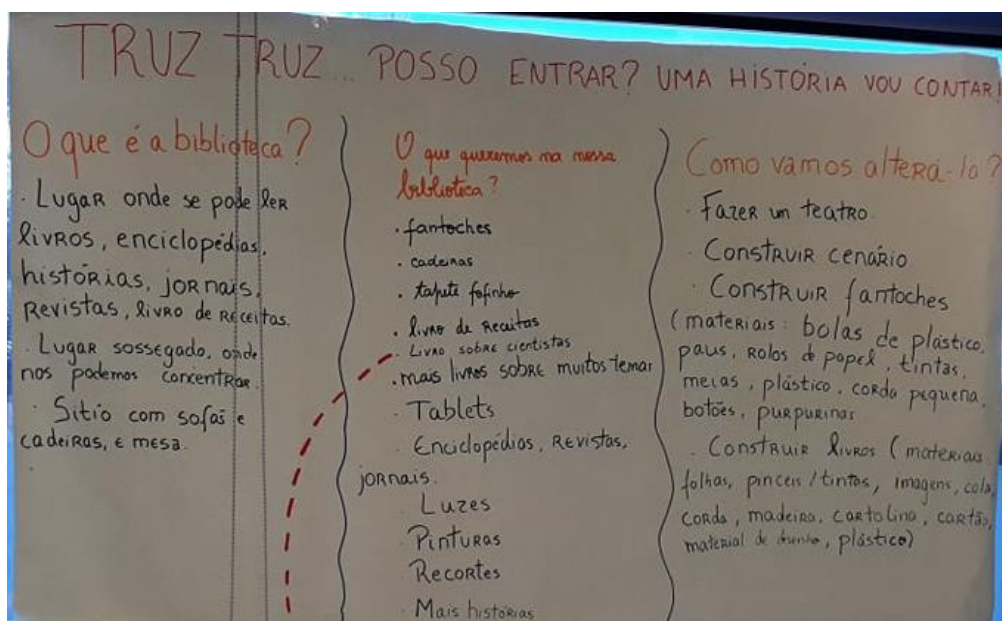 TRUZ TRUZ... POSSO ENTRAR? UMA HISTÓRIA VOU CONTAR!
O que é a biblioteca?
· Lugar onde se pode ler
livros, enciclopédias,
histórias, jornais,
Revistas, livro de receitas.
· Lugar sossegado, onde
nos podemos concentrar.
· Sitio com sofás e
cadeiras, e mesa.
O que queremos na nossa
biblioteca?
· fantoches
· cadeiras
· tapete fofinho
· livro de Receitas
· Livro sobre cientistas
· mais livros sobre muitos temas
· Tablets
· Enciclopédias, Revistas,
jornais.
· Luzes
· Pinturas
· Recortes
· Mais histórias
Como vamos alterá-la?
· Fazer um teatro.
· Construir cenário
· Construir fantoches
(materiais: bolas de plástico,
paus, rolos de papel, tintas,
meias, plástico, corda pequena,
botões, purpurinas
· Construir livros (materiais
folhas, pinceis/tintas, imagens, cola,
corda, madeira, cartolina, cartão,
material de desenho, plástico)